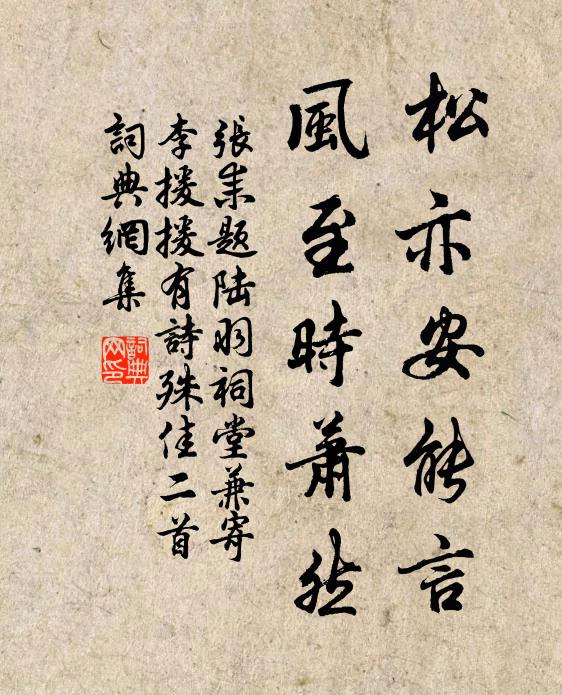 松亦安能言
風至時蕭然
張耒題陸羽祠堂兼寄
李援援有詩殊佳二首
詞典網集
詞典
网印